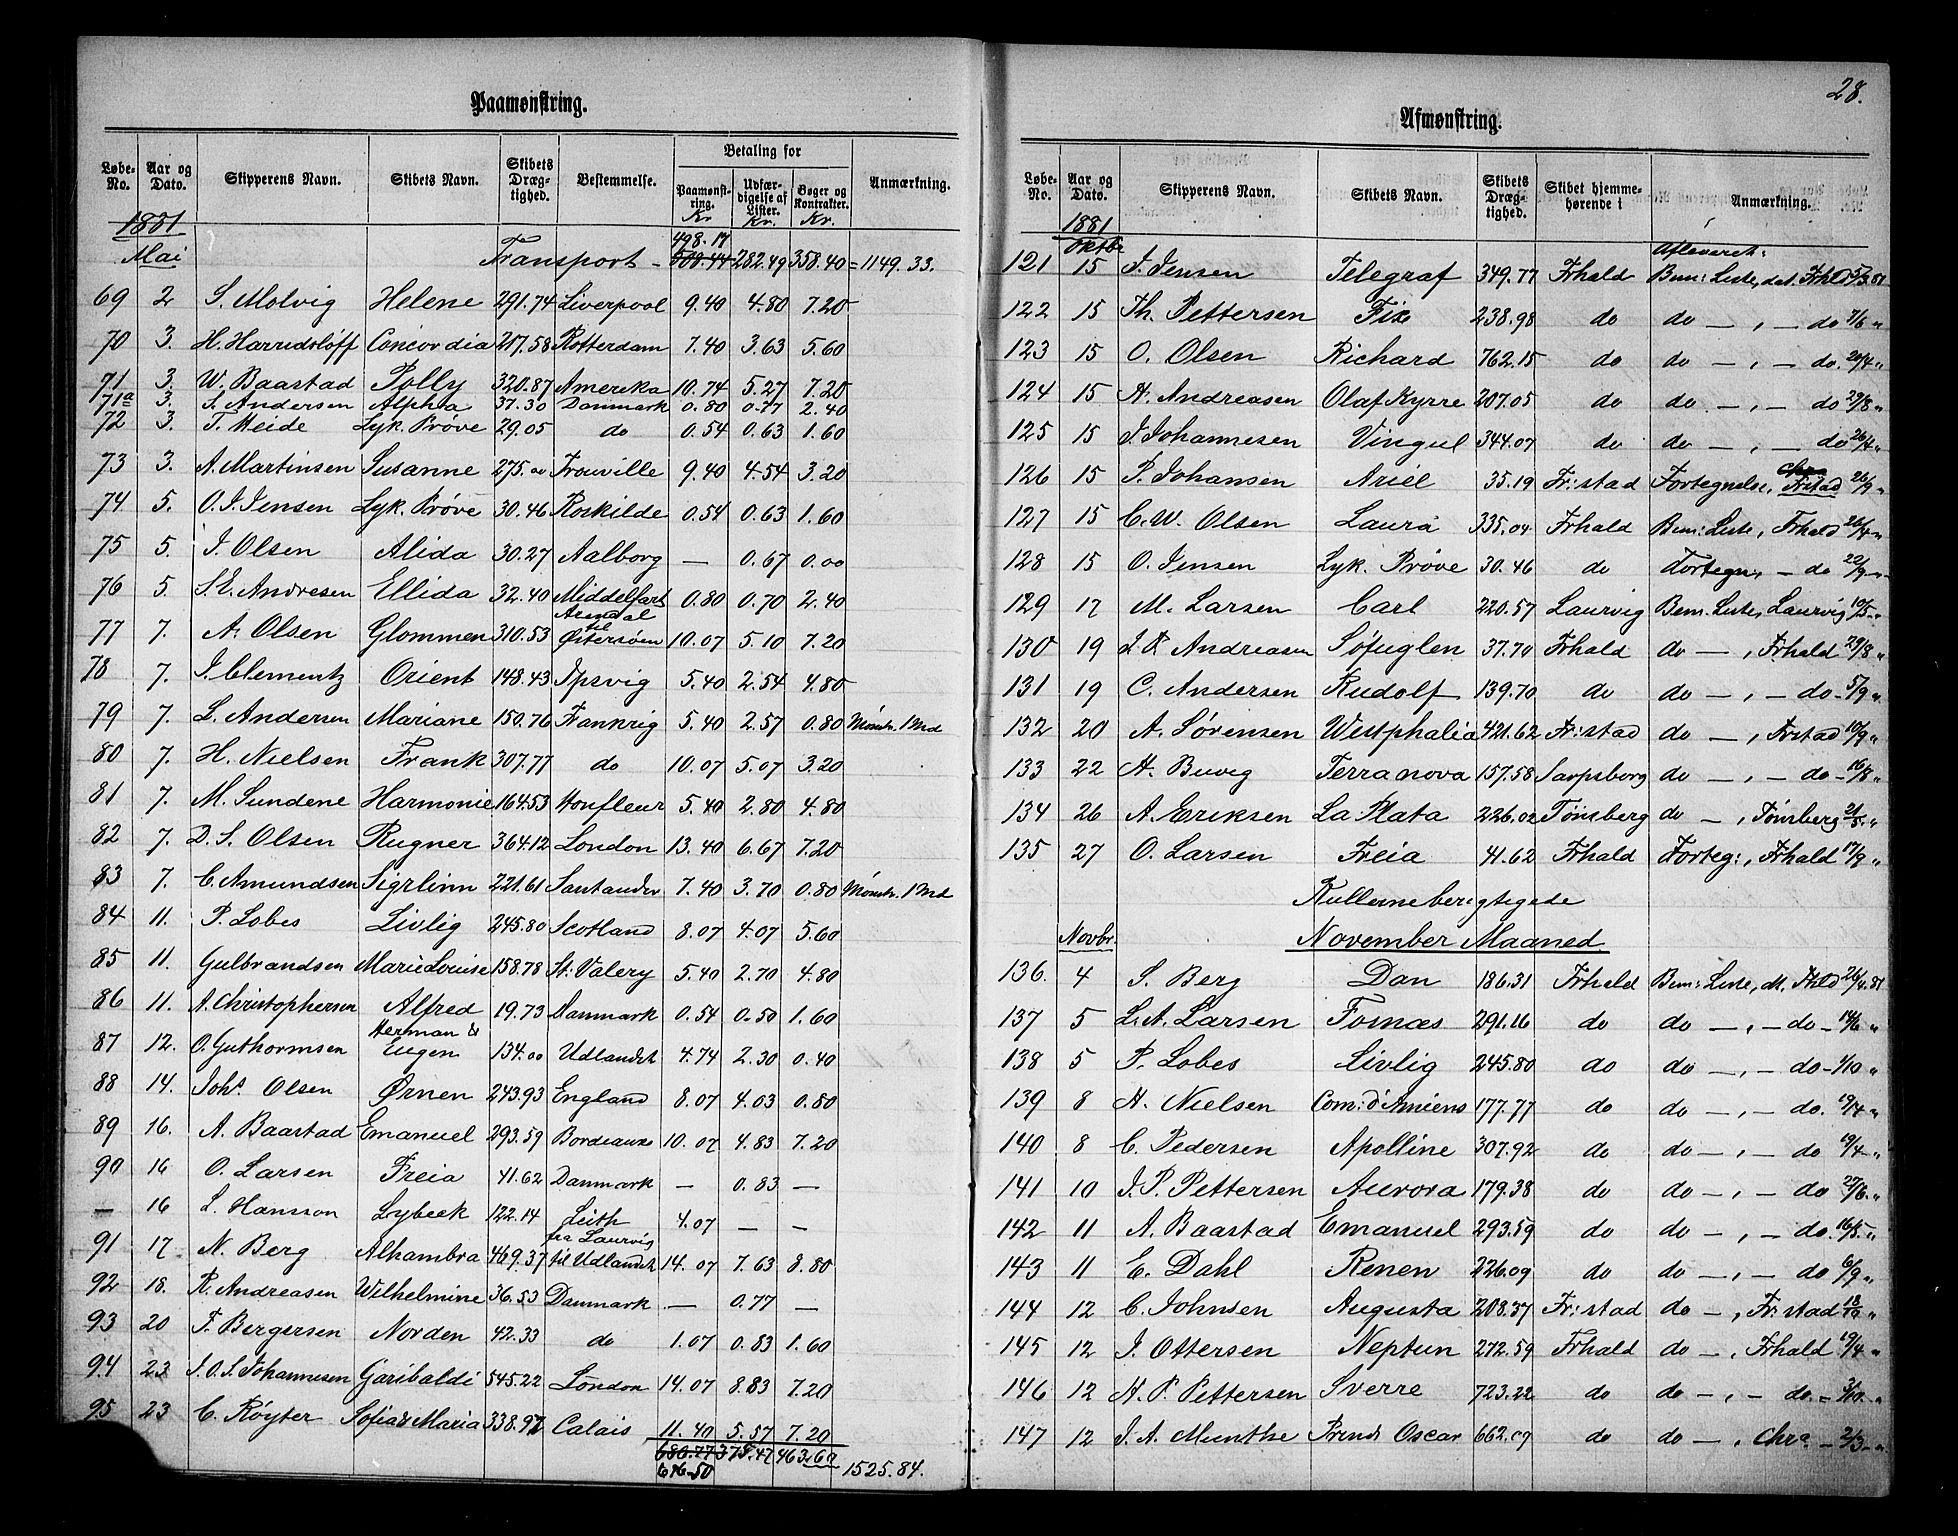 28.
Paamønstring.
Løbe-No. Aar og Dato. Skipperens Navn. Skibets Navn. Skibets Dræg-tighed. Bestemmelse. Betaling for Paamønst-ring. Udfær-digelse af Lister. Bøger og Kontrakter. Anmærkning.
Kr Kr. Kr.
1881
498.17
Mai Transport - 508.44 282.49 358.40 = 1149.33.
69 2 S. Molvig Helene 291.74 Liverpool 9.40 4.80 7.20
70 3. H. Harridsløff Concordia 217.58 Rotterdam 7.40 3.63 5.60
71 3. W. Baastad Polly 320.87 Amerika 10.74 5.27 7.20
71a 3. S. Andersen Alpha 37.30 Danmark 0.80 0.77 2.40
72 3. T. Heide Lyk. Prøve 29.05 do 0.54 0.63 1.60
73 3. A. Martinsen Susanne 275.00 Trouville 9.40 4.54 3.20
74 5. O. J. Jensen Lyk. Prøve 30.46 Roskilde 0.54 0.63 1.60
75 5. J. Olsen Alida 30.27 Aalborg — 0.67 0.00
76 5. S. E. Andresen Ellida 32.40 Middelfart 0.80 0.70 2.40
77 7. A. Olsen Glommen 310.53 Arendal til Østersøen 10.07 5.10 7.20
78 7. J. Clementz Orient 148.43 Ipsvig 5.40 2.54 4.80
79 7. L. Andersen Mariane 150.76 Frankrig 5.40 2.57 0.80 Mønstr. 1 Md
80 7. H. Nielsen Frank 307.77 do 10.07 5.07 3.20
81 7. M. Sundene Harmonie 164.53 Honfleur 5.40 2.80 4.80
82 7. D. S. Olsen Rugner 364.12 London 13.40 6.67 7.20
83 7. C. Amundsen Sigrlinn 221.61 Santander 7.40 3.70 0.80 Mønstr. 1 Md
84 11. P. Lobes Livlig 245.80 Scotland 8.07 4.07 5.60
85 11. Gulbrandsen Marie Louise 158.78 St. Valery 5.40 2.70 4.80
86 11. A. Christophersen Alfred 19.73 Danmark 0.54 0.50 1.60
87 12. O. Guthormsen Herman & Eugen 134.00 Udlandet 4.74 2.30 0.40
88 14. Johs Olsen Ørnen 243.93 England 8.07 4.03 0.80
89 16. A. Baastad Emanuel 293.59 Bordeaux 10.07 4.83 7.20
90 16 O. Larsen Freia 41.62 Danmark — 0.83 —
— 16 L. Hansson Lybeck 122.14 Leith 4.07 — —
91 17 N. Berg Alhambra 469.37 fra Laurvig til Udlandet 14.07 7.63 8.80
92 18. R. Andreasen Wilhelmine 36.53 Danmark — 0.77 —
93 20 F. Bergersen Norden 42.33 do 1.07 0.83 1.60
94 23 J. O. S. Johannesen Garibaldi 545.22 London 14.07 8.83 7.20
95 23 C. Røyter Sofia & Maria 338.97 Calais 11.40 5.57 7.20
686.77 375.47 463.60
686.50 1525.84.
Afmønstring.
Løbe-No. Aar og Dato. Skipperens Navn. Skibets Navn. Skibets Dræg-tighed. Skibet hjemme-hørende i Anmærkning.
1881
Oktbr Afleveret:
121 15 J. Jensen Telegraf 349.77 Frhald Bem: Liste, dat. Frhld 5/3.81
122 15 Th. Pettersen Fix 238.98 do do — , — do 7/6 "
123 15 O. Olsen Richard 762.15 do do — , — do. 20/4 "
124 15 H. Andreasen Olaf Kyrre 207.05 do do — , — do 29/8 "
125 15 J. Johannesen Vingul 344.07 do do — , — do 26/4 "
126 15 P. Johansen Ariel 35.19 Fr:stad Fortegnelse, Chra Frstad 26/9 "
127 15 C. W. Olsen Laura 335.04 Frhald Bem: Liste, Frhald 26/4 "
128 15 O. Jensen Lyk. Prøve 30.46 do Fortegn, — do 22/9 "
129 17 M. Larsen Carl 220.57 Laurvig Bem: Liste, Laurvig 10/5 "
130 19 J. P. Andreasen Søfuglen 37.70 Frhald do — , Frhald 29/8 "
131 19 C. Andersen Rudolf 139.70 do do — , — do 5/9 "
132 20 A. Sørensen Westphalia 421.62 Fr:stad do — , Frstad 10/9 "
133 22 H. Buvig Terra nova 157.58 Sarpsborg do — , — do 16/8 "
134 26 A. Eriksen La Plata 226.02 Tønsberg do — , Tønsberg 21/5 "
135 27 O. Larsen Freia 41.62 Frhald Forteg:, Frhald 17/9 "
Rullerne berigtigede
Novbr. November Maaned
136. 4 S. Berg Dan 186.31 Frhald Bem: Liste, M. Fhld 26/4.81
137 5 L. A. Larsen Fosnæs 291.16 do do — , — do 14/6 "
138 5 P. Lobes Livlig 245.80 do do — , — do 1/10 "
139 8 H. Nielsen Com: d'Amiens 177.77 do do — , — do. 19/4 "
140 8 C. Pedersen Apolline 307.92 do do — , — do 19/4 "
141 10 J. P. Pettersen Aurora 179.38 do do — , — do 27/6 "
142 11 A. Baastad Emanuel 293.59 do do — , — do. 16/5 "
143 11 E. Dahl Renen 226.09 do do — , — do 6/9 "
144 12 C. Johnsen Augusta 208.37 Fr:stad do — , Fr:stad 18/10 "
145 12 J. Ottersen Neptun 272.59 Frhald do — , Frhald 19/4 "
146 12 H. P. Pettersen Sverre 723.22 do do — , — do. 3/10 "
147 12 J. A. Munthe Prinds Oscar 662.09 do do — , Chra — 2/3 "